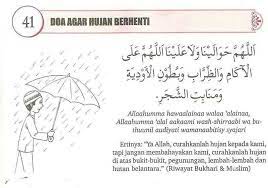 41
DOA AGAR HUJAN BERHENTI
اَللّٰهُمَّ حَوَالَيْنَا وَلَا عَلَيْنَا اَللّٰهُمَّ عَلَى
الْآكَامِ وَالظِّرَابِ وَبُطُوْنِ الْأَوْدِيَةِ
وَمَنَابِتِ الشَّجَرِ.
Allaahumma hawaalainaa walaa 'alainaa,
Allaahumma 'alal aakaami wash-shirraabi wa bu-
thuunil audiyati wamanaabitisy syajari
Ertinya: "Ya Allah, curahkanlah hujan kepada kami,
tapi jangan membahayakan kami, curahkanlah hujan
di atas bukit-bukit, pegunungan, lembah-lembah dan
hutan belantara." (Riwayat Bukhari & Muslim)